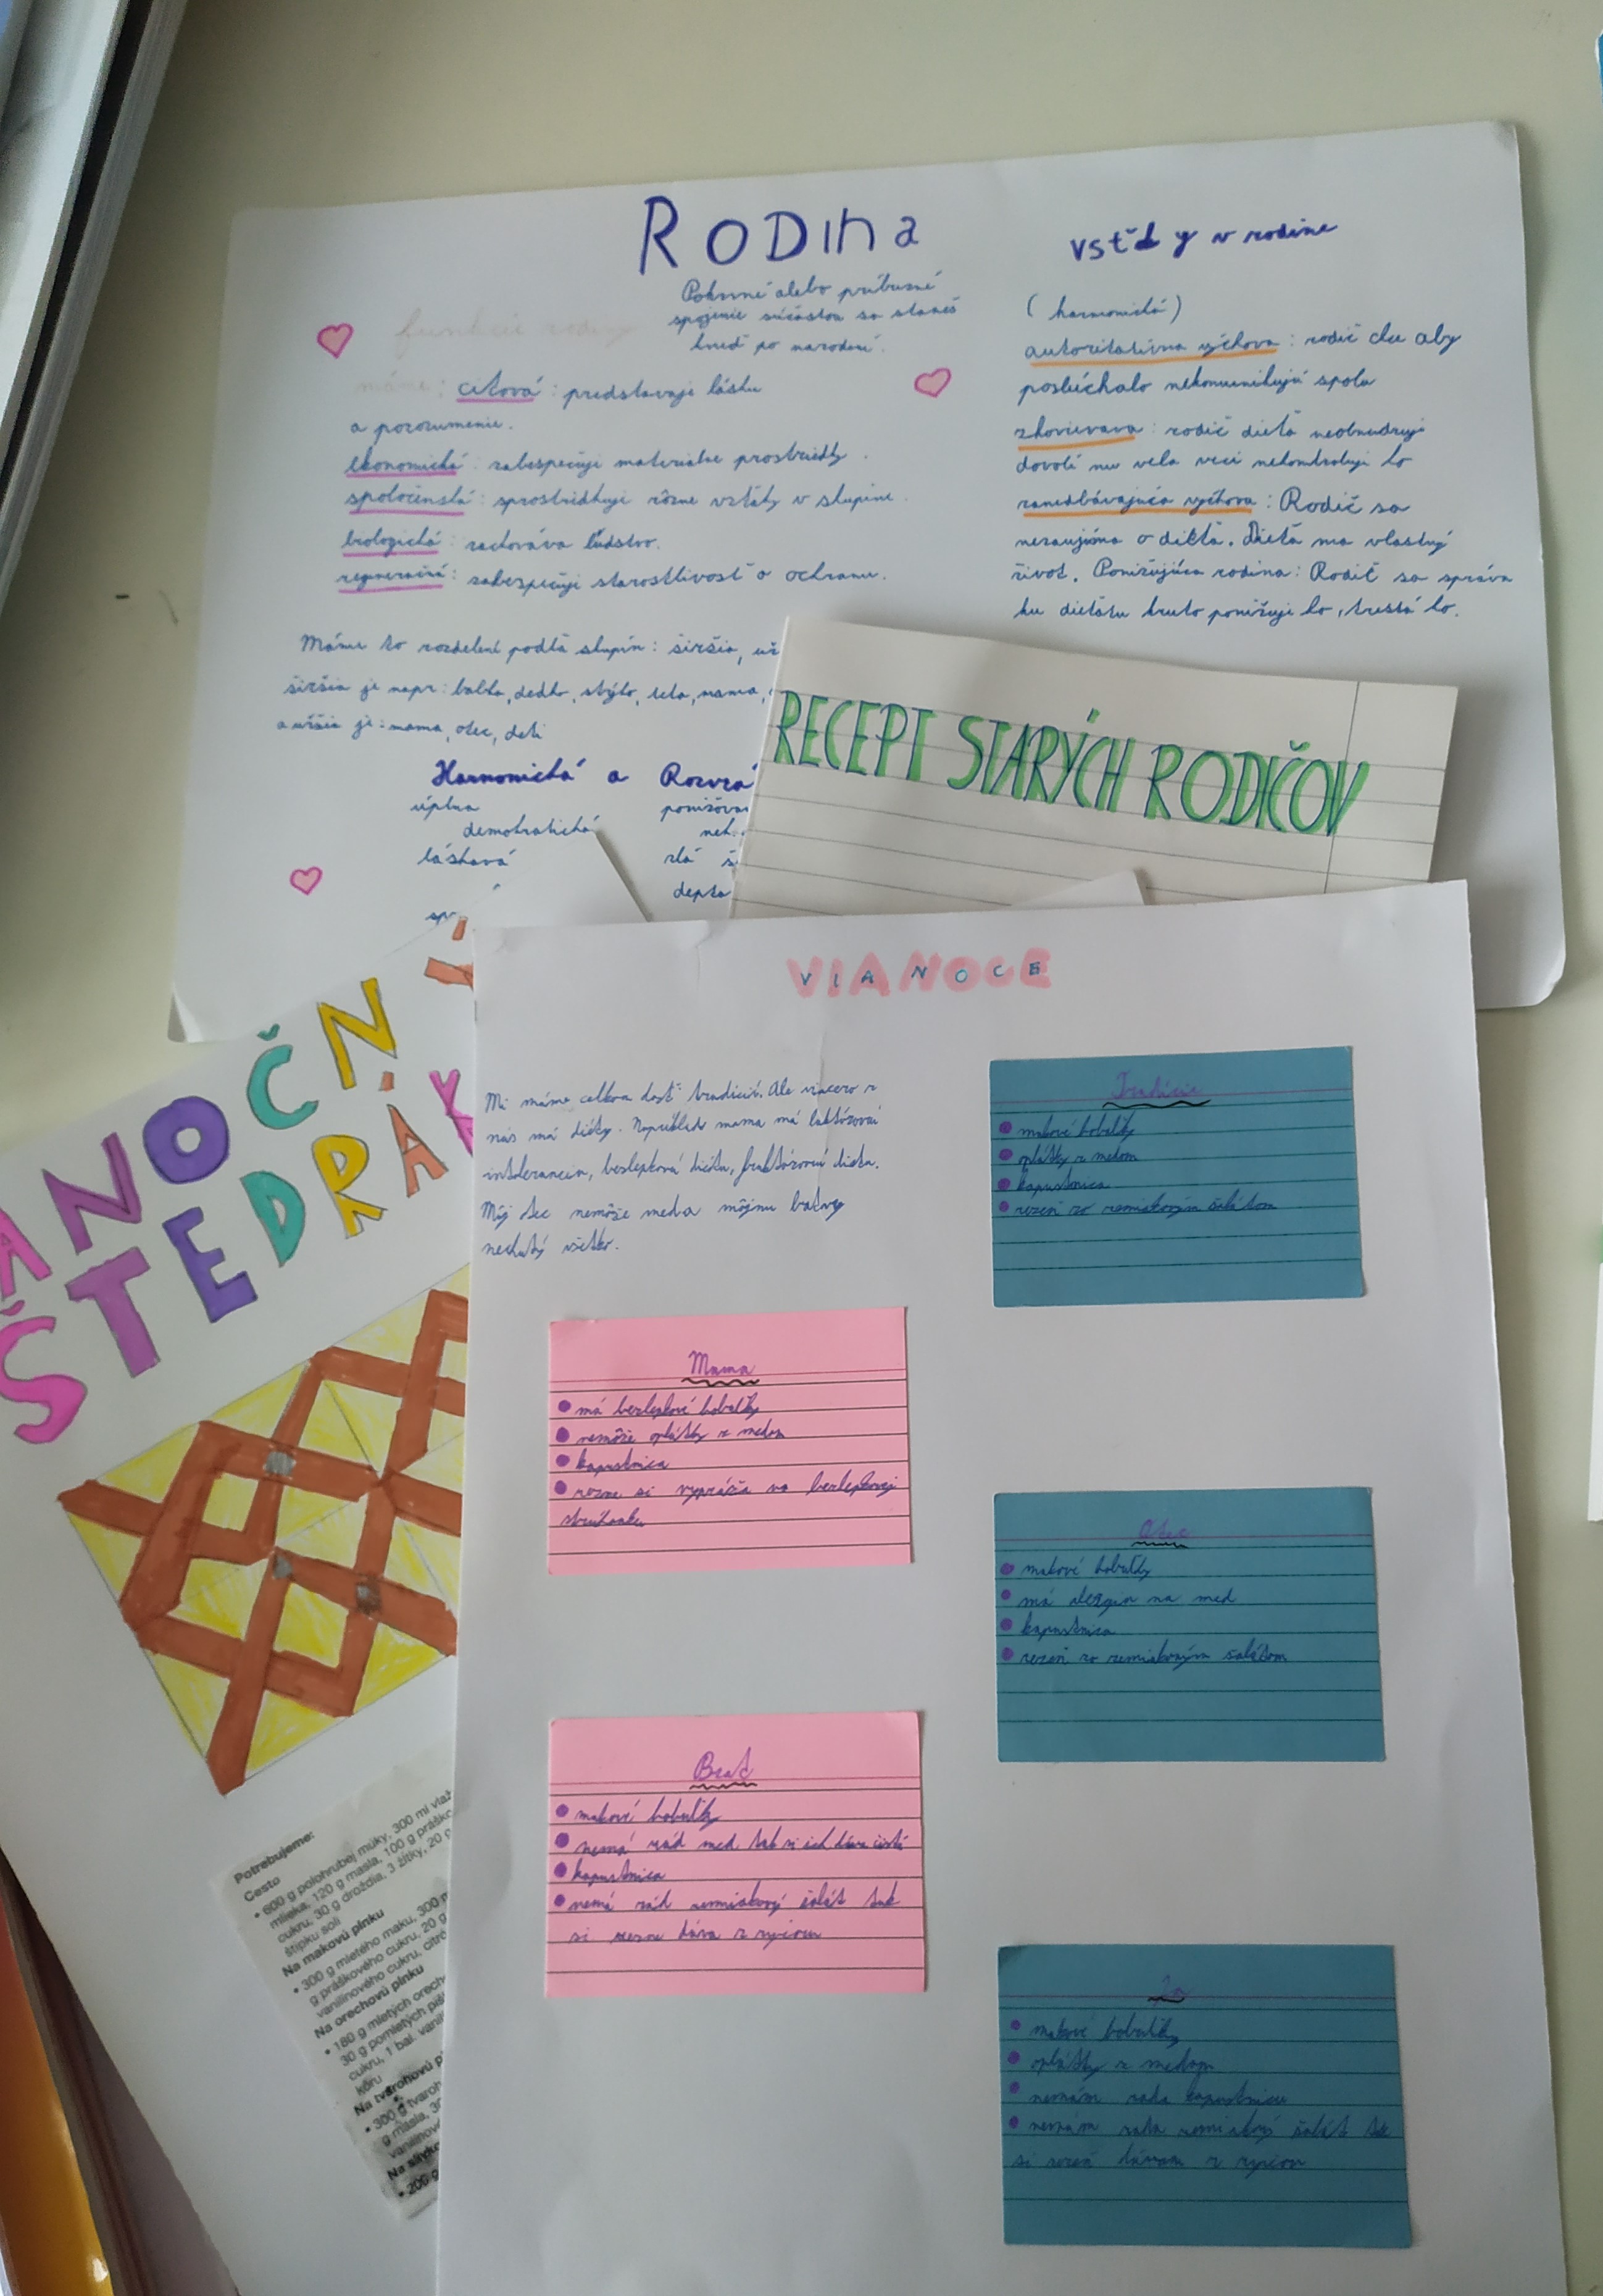 RODina
Pokrvné alebo príbuzné
spojenie súčasťou sa staneš
hneď po narodení.
funkcie rodiny
máme: citová: predstavuje lásku
a porozumenie.
ekonomická: zabespečuje materialne prostriedky.
spoločenská: sprostriedkuje rôzne vzťahy v skupine.
biologická: zachováva ľudstvo.
regeneračná: zabespečuje starostlivosť a ochranu.
Máme to rozdelení podľa skupín: širšia, už
širšia je napr: babka, dedko, strýko, teta, mama,
a užšia je: mama, otec, deti
Harmonická a Rozvra
úplna
demokratická
láskavá
ponižova
neh
zlá
depta
vsťahy v rodine
(harmonická)
autoritatívna výchova: rodič chce aby
poslúchalo nekomunikujú spolu
zhovievava: rodič dieťa neobmedzuje
dovolí mu vela veci nekontroluje ho
zanedbávajúca výchova: Rodič sa
nezaujíma o dieťa. Dieťa ma vlastný
život. Ponižujúca rodina: Rodič sa správa
ku dieťaťu kruto ponižuje ho, trestá ho.
RECEPT STARÝCH RODIČOV
ANOČNÝ
ŠTEDRÁK
Potrebujeme:
Cesto
• 600 g polohrubej múky, 300 ml vlaž
mlieka, 120 g masla, 100 g práško
cukru, 30 g droždia, 3 žĺtky, 20 g
štipku soli
Na makovú plnku
• 300 g mletého maku, 300 m
g práškového cukru, 20 g
vanilínového cukru, citró
Na orechovú plnku
• 180 g mletých orech
30 g pomletých piš
cukru, 1 bal. vanil
kôru
Na tvarohovú p
• 300 g tvaroh
g masla, 30
vanilínov
• 200 g
VIANOCE
Mi máme celkom dosť tradicií. Ale viacero z
nás má diéty. Napríklad mama má laktózovú
intoleranciu, bezlepkovú diétu, fruktózovú dietu.
Môj otec nemôže med a môjmu bratovy
nechutý všetko.
Tradície
• makové bobaľky
• oplátky z medom
• kapustnica
• rezeň zo zemiakovým šalátom
Mama
• má bezlepkové bobaľky
• nemôže oplátky z medom
• kapustnica
• rezne si vypráža vo bezlepkovej
strúhanke
Otec
• makové bobaľky
• má alergiu na med
• kapustnica
• rezeň zo zemiakovým šalátom
Brat
• makové bobaľky
• nemá rád med tak si ich dáva čisté
• kapustnica
• nemá rád zemiakový šalát tak
si rezne dáva z ryžou
Ja
• makové bobaľky
• oplátky z medom
• nemám rada kapustnicu
• nemám rada zemiakový šalát tak
si rezeň dávam z ryžou